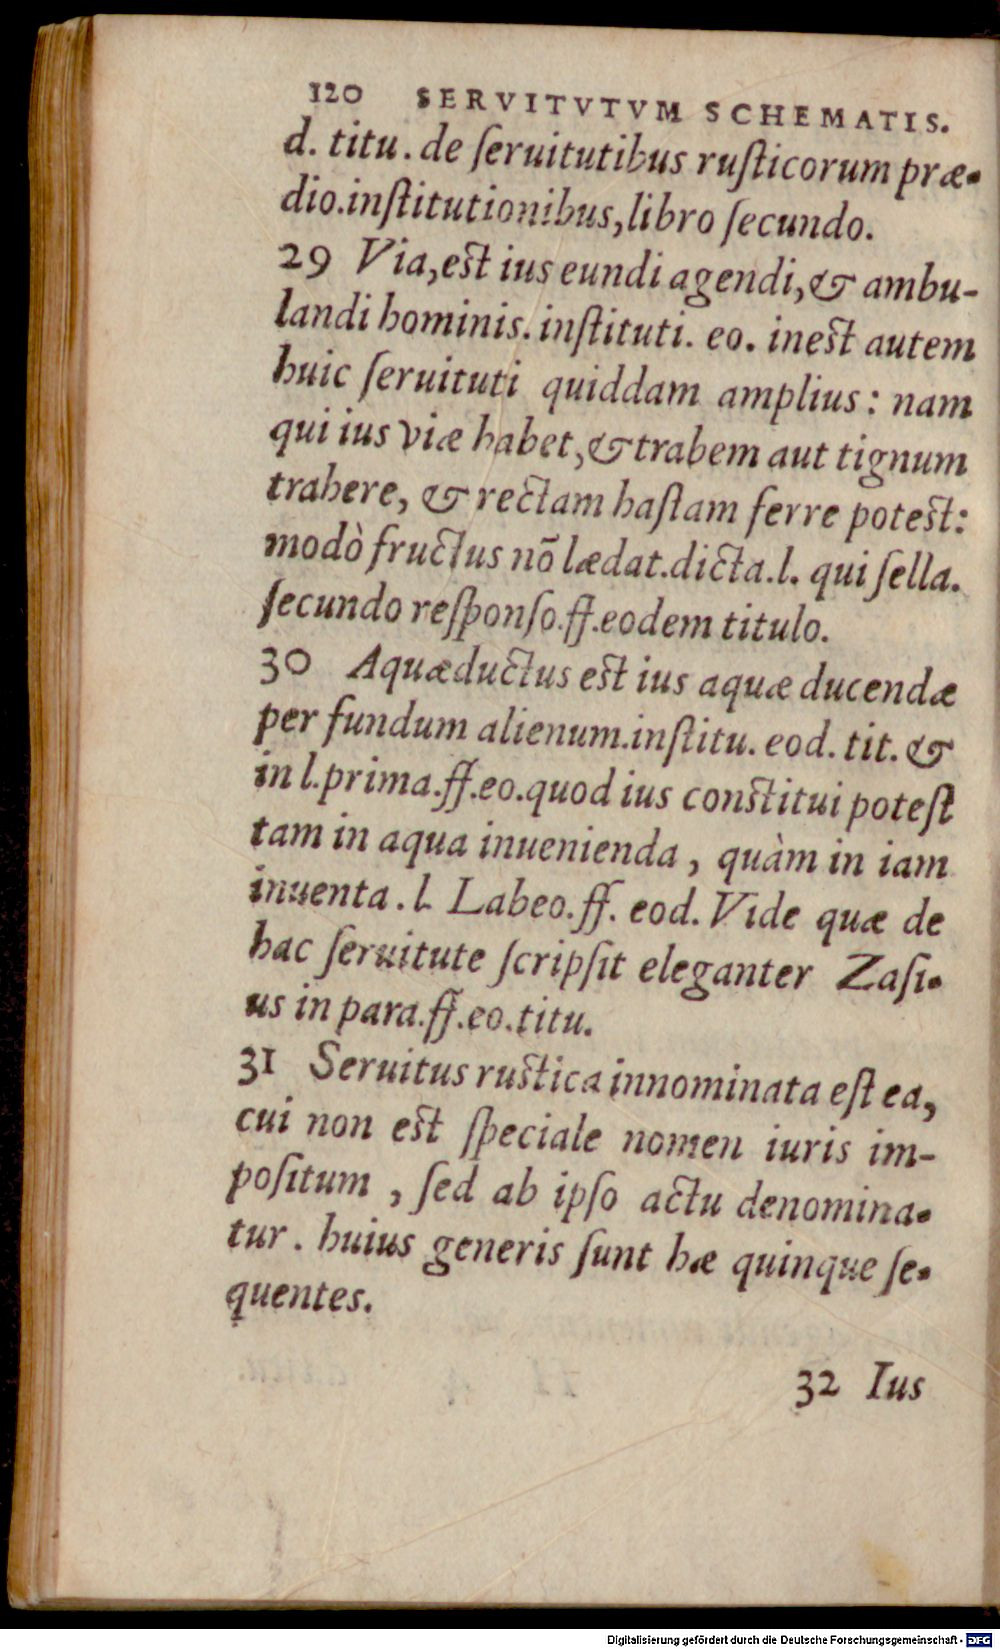 120 SERVITVTVM SCHEMATIS.
d. titu. de ſeruitutibus ruſticorum præ-
dio.inſtitutionibus,libro ſecundo.
29 Via,eſt ius eundi agendi,& ambu-
landi hominis. inſtituti. eo. ineſt autem
huic ſeruituti quiddam amplius: nam
qui ius viæ habet,& trabem aut tignum
trahere, & rectam haſtam ferre poteſt:
modò fructus nō lædat.dicta.l. qui ſella.
ſecundo reſponſo.ff.eodem titulo.
30 Aquæductus eſt ius aquæ ducendæ
per fundum alienum.inſtitu. eod. tit. &
in l.prima.ff.eo.quod ius conſtitui poteſt
tam in aqua inuenienda, quàm in iam
inuenta. l. Labeo.ff. eod. Vide quæ de
hac ſeruitute ſcripſit eleganter Zaſi-
us in para.ff.eo.titu.
31 Seruitus ruſtica innominata eſt ea,
cui non eſt ſpeciale nomen iuris im-
poſitum, ſed ab ipſo actu denomina-
tur. huius generis ſunt hæ quinque ſe-
quentes.
32 Ius
Digitalisierung gefördert durch die Deutsche Forschungsgemeinschaft - DFG